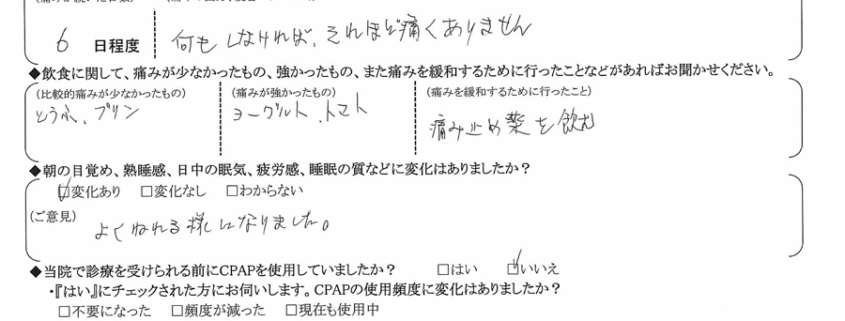 6 日程度 何もしなければ、それほど痛くありません
◆飲食に関して、痛みが少なかったもの、強かったもの、また痛みを緩和するために行ったことなどがあればお聞かせください。
(比較的痛みが少なかったもの) (痛みが強かったもの) (痛みを緩和するために行ったこと)
とうふ、プリン ヨーグルト、トマト 痛み止め薬を飲む
◆朝の目覚め、熟睡感、日中の眠気、疲労感、睡眠の質などに変化はありましたか？
☑変化あり □変化なし □わからない
(ご意見) よくねれる様になりました。
◆当院で診療を受けられる前にCPAPを使用していましたか？ □はい ☑いいえ
・『はい』にチェックされた方にお伺いします。CPAPの使用頻度に変化はありましたか？
□不要になった □頻度が減った □現在も使用中